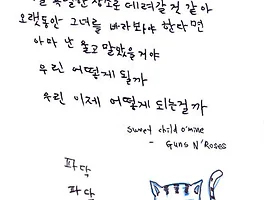 특별한 장소로 데려갈 것 같아
오랫동안 그녀를 바라봐야 한다면
아마 난 울고 말았을거야
우린 어떻게 될까
우린 이제 어떻게 되는걸까
sweet child o'mine
- GUNS N' ROSES
파닥
파닥